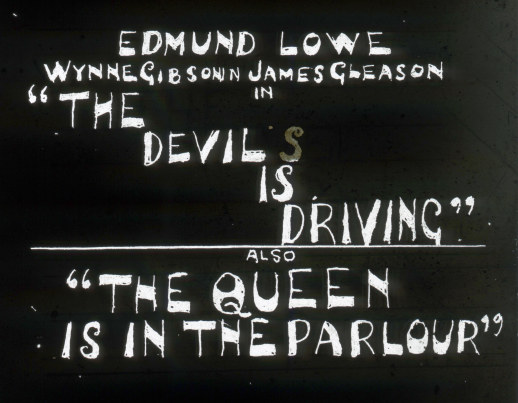 EDMUND LOWE
WYNNE GIBSON JAMES GLEASON
IN
“THE
DEVIL S
IS
DRIVING”
ALSO
“THE QUEEN
IS IN THE PARLOUR”